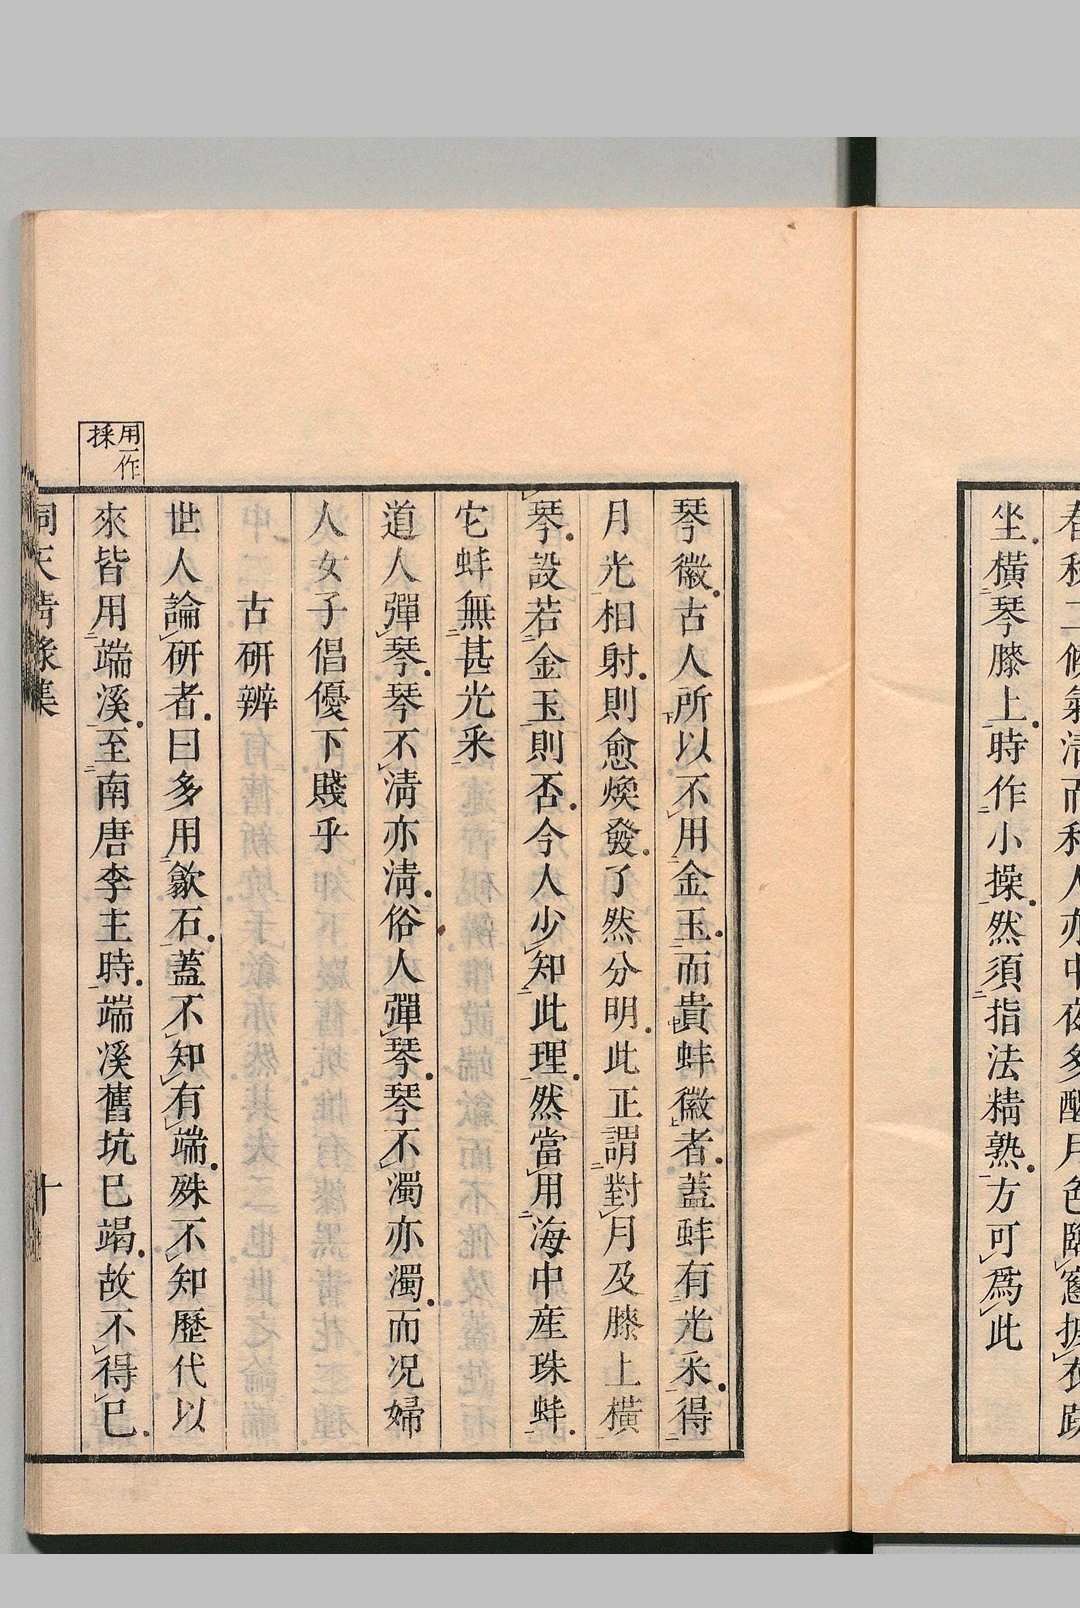 春秋二候氣清而和人亦中夜多醒月色臨窻披衣趺
坐橫琴膝上時作小操然須指法精熟方可爲此
琴徽古人所以不用金玉而貴蚌徽者蓋蚌有光采得
月光相射則愈煥發了然分明此正謂對月及膝上橫
琴設若金玉則否今人少知此理然當用海中産珠蚌
它蚌無甚光采
道人彈琴琴不清亦清俗人彈琴琴不濁亦濁而况婦
人女子倡優下賤乎
古硏辨
世人論硏者曰多用歙石蓋不知有端殊不知歷代以
來皆用端溪至南唐李主時端溪舊坑已竭故不得已
用一作
採
洞天清錄集
十